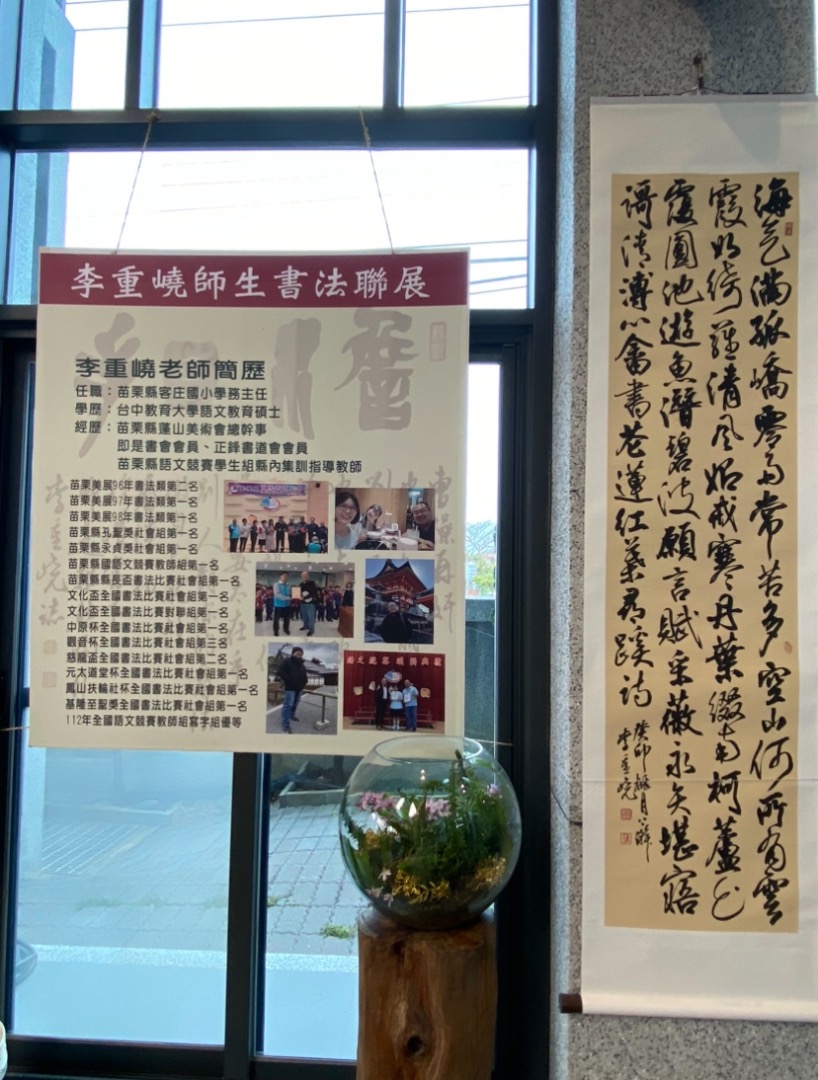 李重嶢師生書法聯展
李重嶢老師簡歷
任職：苗栗縣客庄國小學務主任
學歷：台中教育大學語文教育碩士
經歷：苗栗縣蓬山美術會總幹事
即是書會會員、正鋒書道會會員
苗栗縣語文競賽學生組縣內集訓指導教師
苗栗美展96年書法類第二名
苗栗美展97年書法類第一名
苗栗美展98年書法類第一名
苗栗縣孔聖獎社會組第一名
苗栗縣永貞獎社會組第一名
苗栗縣國語文競賽教師組第一名
苗栗縣縣長盃書法比賽社會組第一名
文化盃全國書法比賽社會組第一名
文化盃全國書法比賽對聯組第一名
中原杯全國書法比賽社會組第一名
觀音杯全國書法比賽社會組第三名
慈龍盃全國書法比賽社會組第二名
元太道堂杯全國書法比賽社會組第一名
鳳山扶輪社杯全國書法比賽社會組第一名
基隆至聖獎全國書法比賽社會組第一名
112年全國語文競賽教師組寫字組優等
海氣滿孤嶠零雨常苦多空山何所有雲
霞如綺羅清風始戒寒丹葉綴南柯蘆花
覆圓池遊魚潛碧波願言賦采薇永矢堪寤
謌
癸卯
李重嶢